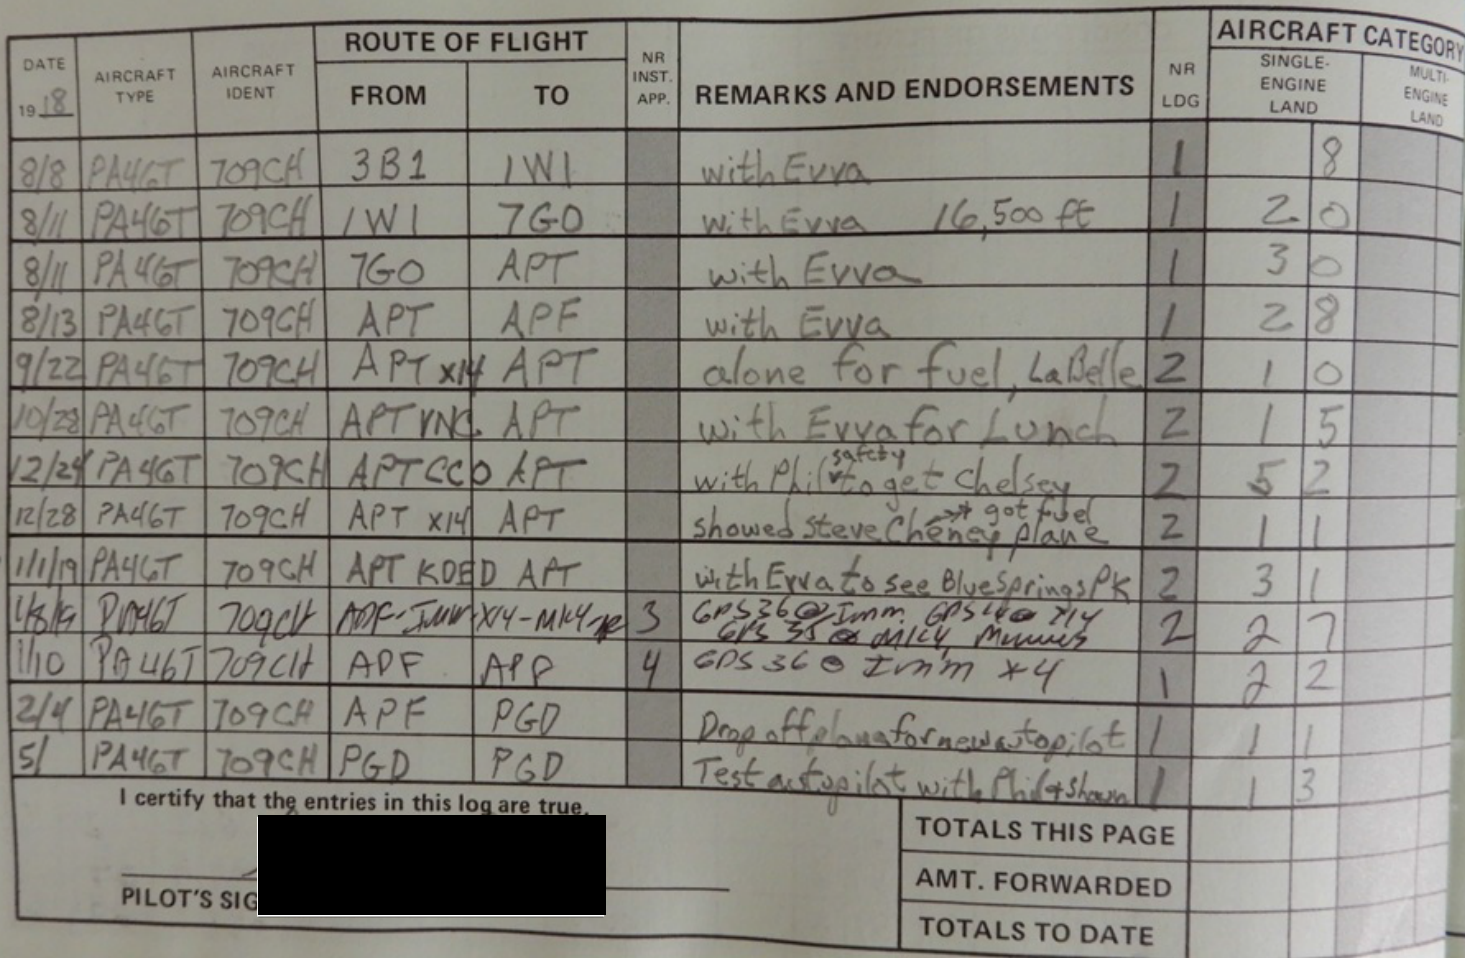 DATE AIRCRAFT TYPE AIRCRAFT IDENT ROUTE OF FLIGHT NR INST. APP. REMARKS AND ENDORSEMENTS NR LDG AIRCRAFT CATEGORY
1918 FROM TO SINGLE-ENGINE LAND MULTI-ENGINE LAND
8/8 PA46T 709CH 3B1 1W1 with Evva 1 8
8/11 PA46T 709CH 1W1 7G0 with Evva 16,500 ft 1 2 0
8/11 PA46T 709CH 7G0 APT with Evva 1 3 0
8/13 PA46T 709CH APT APF with Evva 1 2 8
9/22 PA46T 709CH APT X14 APT alone for fuel, LaBelle 2 1 0
10/28 PA46T 709CH APT VNC APT with Evva for Lunch 2 1 5
12/24 PA46T 709CH APT CCO APT with Phil safety to get Chelsey 2 5 2
12/28 PA46T 709CH APT X14 APT showed Steve Cheney plane got fuel 2 1 1
1/1/19 PA46T 709CH APT KDED APT with Evva to see Blue Springs PK 2 3 1
1/8/19 PA46T 709CH APF-IMM-X14-MKY 3 GPS 36 @ Imm. GPS X14
GPS MKY, 2 2 7
1/10 PA46T 709CH APF APF 4 GPS 36 @ Imm x4 1 2 2
2/4 PA46T 709CH APF PGD Drop off plane for new autopilot 1 1 1
5/ PA46T 709CH PGD PGD Test autopilot with Phil + Shawn 1 1 3
I certify that the entries in this log are true.
TOTALS THIS PAGE
AMT. FORWARDED
PILOT'S SIG
TOTALS TO DATE